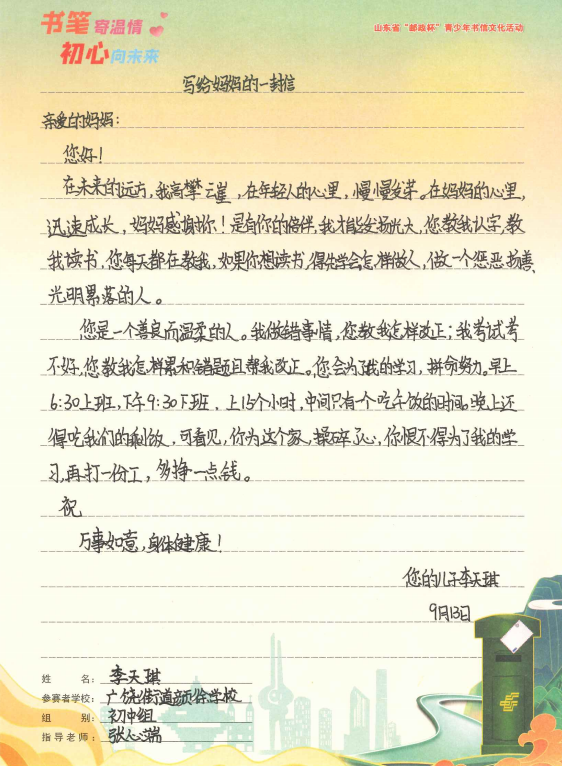 书笔寄温情
初心向未来
山东省“邮政杯”青少年书信文化活动
写给妈妈的一封信
亲爱的妈妈：
您好！
在未来的远方，我高攀云崖，在年轻人的心里，慢慢发芽。在妈妈的心里，
迅速成长，妈妈感谢你！是有你的陪伴，我才能发扬光大，您教我认字，教
我读书，您每天都在教我，如果你想读书，得先学会怎样做人，做一个惩恶扬善、
光明磊落的人。
您是一个善良而温柔的人。我做错事情，您教我怎样改正；我考试考
不好，您教我怎样累积错题且帮我改正。您会为了我的学习，拼命努力。早上
6:30上班，下午9:30下班，上15个小时，中间只有个吃午饭的时间。晚上还
得吃我们的剩饭，可看见，你为这个家，操碎了心，你恨不得为了我的学
习，再打一份工，多挣一点钱。
祝
万事如意，身体健康！
您的儿子李天琪
9月13日
姓名：李天琪
参赛者学校：广饶街道颜徐学校
组别：初中组
指导老师：张心端